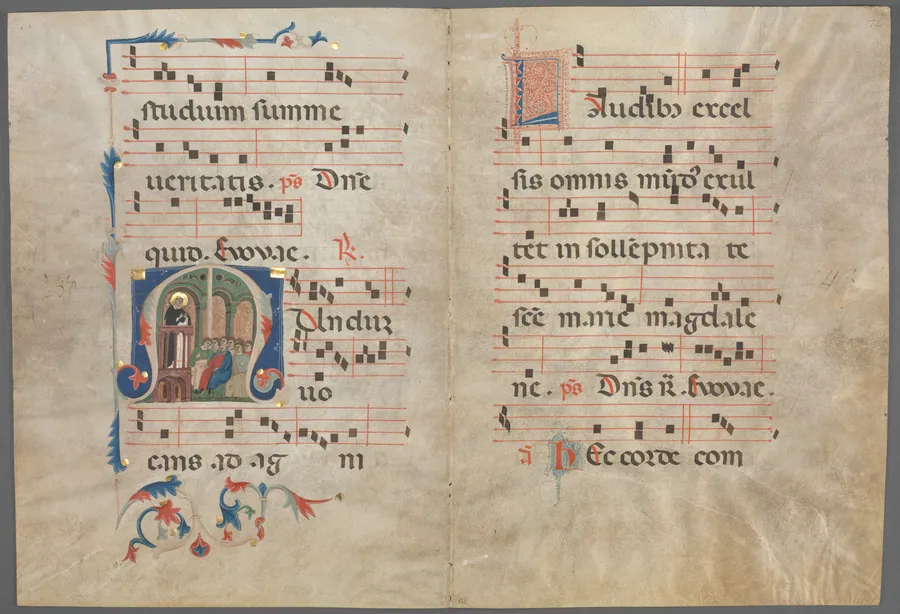 studium summe
ueritatis. ps Dne
quid. Euouae. R.
Mundum
uo
cans ad ag ni
Laudibɔ excel
sis omnis mūdꝰ exul
tet in sollēpnita te
scē marie magdale
ne. ps Dn̄s R̄. Euouae.
a hEc corde com